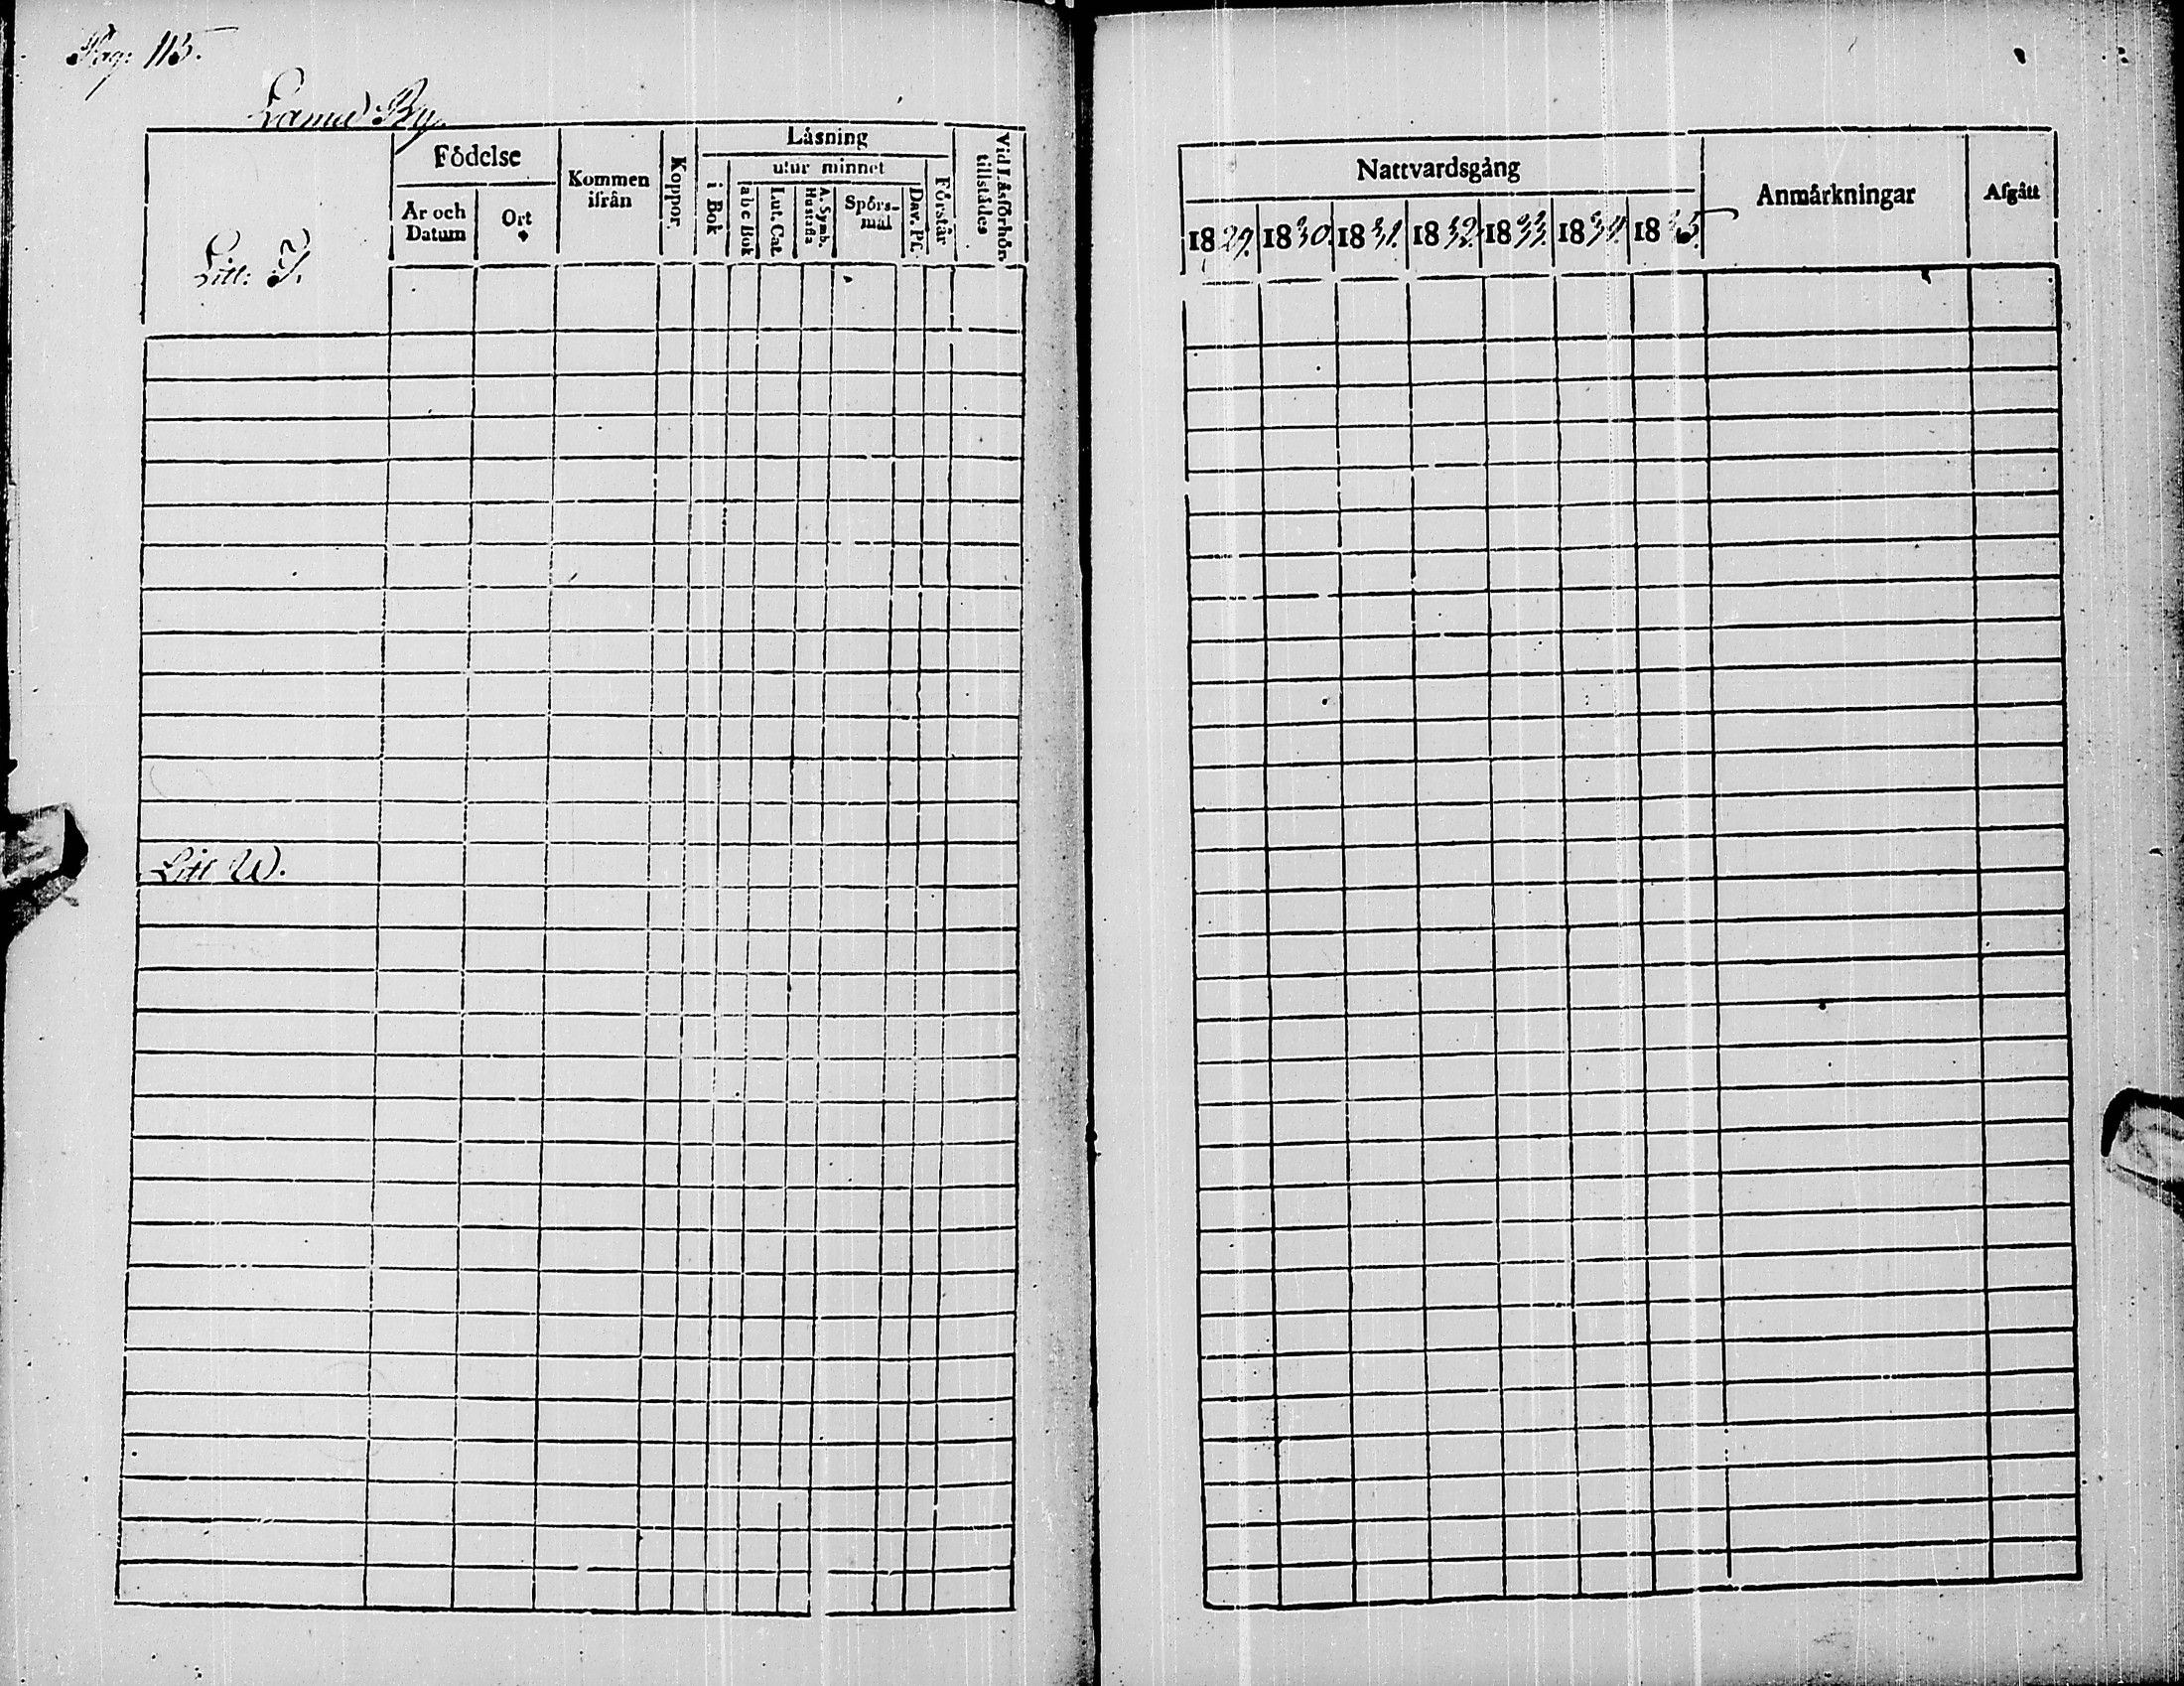 Pag: 115.
By.
Födelse
År och Datum
Ort
Kommen ifrån
Koppor
Läsning
i Bok
utur minnet
a b c Bok
Lut. Cat.
A. Symb. Hustafla
Spörs-mål
Dav. Ps.
Förstår
Vid Läsförhör tillstädes
Nattvardsgång
1829.
1830.
1831.
1832.
1833.
1834.
1835.
Anmärkningar
Afgått
Litt: T.
Litt W.